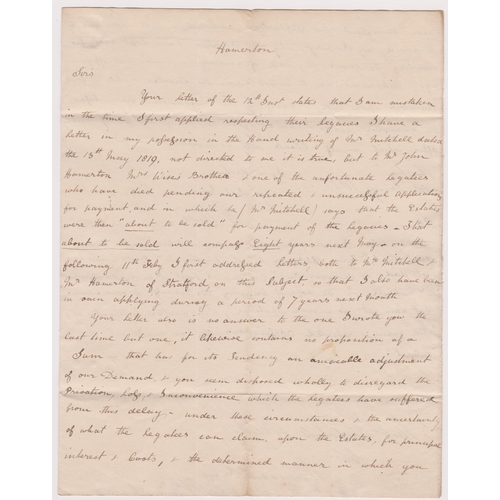 Hamerton
Sirs
Your letter of the 12th Inst states that I am mistaken
in the time I first applied respecting these legacies I have a
letter in my possession in the Hand writing of Mr Mitchell dated
the 13th May 1819, not directed to me it is true, but to Mr John
Hamerton Mrs Wises Brother & one of the unfortunate legatees
who have died pending our repeated & unsuccessful applications
for payment, and in which he (Mr Mitchell) says that the Estates
were then "about to be sold" for payment of the legacies - That
about to be sold will compleat Eight years next May - on the
following 11th Feby I first addressed letters both to Mr Mitchell &
Mr Hamerton of Stratford, on this Subject, so that I also have been
in own applying during a period of 7 years next Month
Your letter also is no answer to the one I wrote you the
last time but one, it likewise contains no proposition of a
Sum - that has for its tendency an amicable adjustment
of our Demand, & you seem disposed wholly to disregard the
Privation, Loss, & Inconvenience which the legatees have suffered
from this delay, - under these circumstances & the uncertainty
of what the legatees can claim, upon the Estates, for principal
interest & Costs, & the determined manner in which you